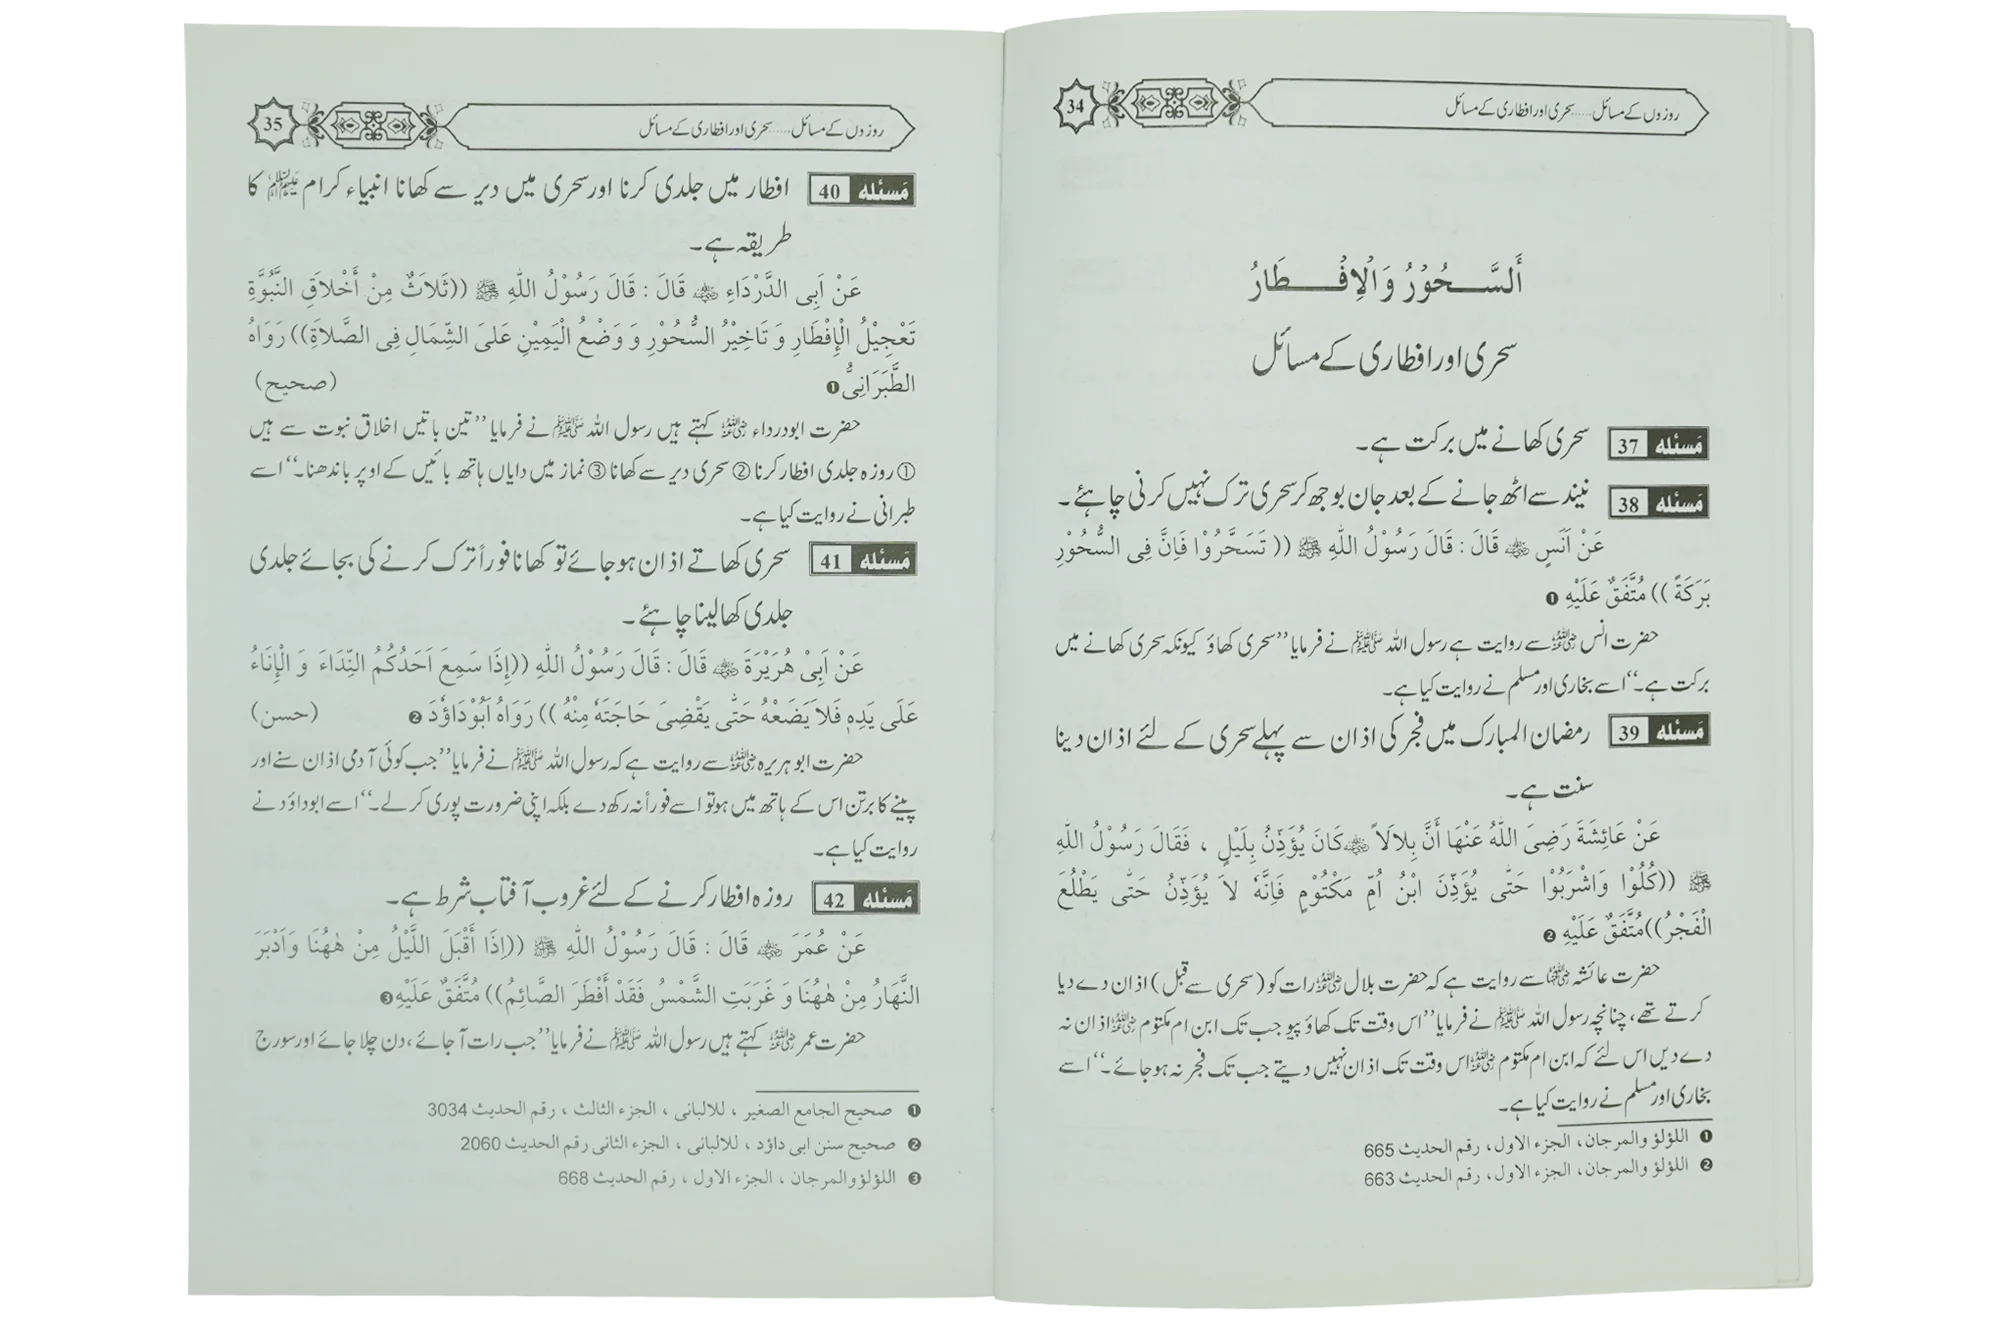 روزوں کے مسائل ...... سحری اور افطاری کے مسائل 34
أَلسَّحُوْرُ وَالْاِفْطَارُ
سحری اور افطاری کے مسائل
مَسئله 37 سحری کھانے میں برکت ہے۔
مَسئله 38 نیند سے اٹھ جانے کے بعد جان بوجھ کر سحری ترک نہیں کرنی چاہئے۔
عَنْ اَنَسٍ ؓ قَالَ : قَالَ رَسُوْلُ اللّٰهِ ﷺ (( تَسَحَّرُوْا فَاِنَّ فِی السُّحُوْرِ
بَرَكَةً )) مُتَّفَقٌ عَلَيْهِ ❶
حضرت انس ؓ سے روایت ہے رسول اللہ ﷺ نے فرمایا ’’سحری کھاؤ کیونکہ سحری کھانے میں
برکت ہے۔‘‘ اسے بخاری اور مسلم نے روایت کیا ہے۔
مَسئله 39 رمضان المبارک میں فجر کی اذان سے پہلے سحری کے لئے اذان دینا
سنت ہے۔
عَنْ عَائِشَةَ رَضِیَ اللّٰهُ عَنْهَا أَنَّ بِلاَلاً ؓ كَانَ يُؤَذِّنُ بِلَيْلٍ ، فَقَالَ رَسُوْلُ اللّٰهِ
ﷺ ((كُلُوْا وَاشْرَبُوْا حَتّٰى يُؤَذِّنَ ابْنُ اُمِّ مَكْتُوْمٍ فَاِنَّهٗ لاَ يُؤَذِّنُ حَتّٰى يَطْلُعَ
الْفَجْرُ))مُتَّفَقٌ عَلَيْهِ ❷
حضرت عائشہ ؓ سے روایت ہے کہ حضرت بلال ؓ رات کو (سحری سے قبل) اذان دے دیا
کرتے تھے، چنانچہ رسول اللہ ﷺ نے فرمایا ’’اس وقت تک کھاؤ پیو جب تک ابن ام مکتوم ؓ اذان نہ
دے دیں اس لئے کہ ابن ام مکتوم ؓ اس وقت تک اذان نہیں دیتے جب تک فجر نہ ہو جائے۔‘‘ اسے
بخاری اور مسلم نے روایت کیا ہے۔
❶ اللؤلؤ والمرجان، الجزء الاول، رقم الحديث 665
❷ اللؤلؤ والمرجان، الجزء الاول، رقم الحديث 663
روزوں کے مسائل ...... سحری اور افطاری کے مسائل 35
مَسئله 40 افطار میں جلدی کرنا اور سحری میں دیر سے کھانا انبیاء کرام ﷺ کا
طریقہ ہے۔
عَنْ اَبِی الدَّرْدَاءِ ؓ قَالَ : قَالَ رَسُوْلُ اللّٰهِ ﷺ ((ثَلاَثٌ مِنْ أَخْلاَقِ النُّبُوَّةِ
تَعْجِيْلُ الْإِفْطَارِ وَ تَاخِيْرُ السُّحُوْرِ وَ وَضْعُ الْيَمِيْنِ عَلَى الشِّمَالِ فِی الصَّلاَةِ)) رَوَاهُ
الطَّبَرَانِیُّ ❶ (صحیح)
حضرت ابودرداء ؓ کہتے ہیں رسول اللہ ﷺ نے فرمایا ’’تین باتیں اخلاق نبوت سے ہیں
① روزہ جلدی افطار کرنا ② سحری دیر سے کھانا ③ نماز میں دایاں ہاتھ بائیں کے اوپر باندھنا۔‘‘ اسے
طبرانی نے روایت کیا ہے۔
مَسئله 41 سحری کھاتے اذان ہو جائے تو کھانا فوراً ترک کرنے کی بجائے جلدی
جلدی کھا لینا چاہئے۔
عَنْ اَبِیْ هُرَيْرَةَ ؓ قَالَ : قَالَ رَسُوْلُ اللّٰهِ ((إِذَا سَمِعَ اَحَدُكُمُ النِّدَاءَ وَ الْإِنَاءُ
عَلَى يَدِهٖ فَلاَ يَضَعْهُ حَتّٰى يَقْضِیَ حَاجَتَهٗ مِنْهُ )) رَوَاهُ اَبُوْدَاؤُدَ ❷ (حسن)
حضرت ابو ہریرہ ؓ سے روایت ہے کہ رسول اللہ ﷺ نے فرمایا ’’جب کوئی آدمی اذان سنے اور
پینے کا برتن اس کے ہاتھ میں ہو تو اسے فوراً نہ رکھ دے بلکہ اپنی ضرورت پوری کر لے۔‘‘ اسے ابوداؤد نے
روایت کیا ہے۔
مَسئله 42 روزہ افطار کرنے کے لئے غروب آفتاب شرط ہے۔
عَنْ عُمَرَ ؓ قَالَ : قَالَ رَسُوْلُ اللّٰهِ ﷺ ((اِذَا أَقْبَلَ اللَّيْلُ مِنْ هٰهُنَا وَاَدْبَرَ
النَّهَارُ مِنْ هٰهُنَا وَ غَرَبَتِ الشَّمْسُ فَقَدْ أَفْطَرَ الصَّائِمُ)) مُتَّفَقٌ عَلَيْهِ ❸
حضرت عمر ؓ کہتے ہیں رسول اللہ ﷺ نے فرمایا ’’جب رات آ جائے، دن چلا جائے اور سورج
❶ صحيح الجامع الصغير ، للالبانى ، الجزء الثالث ، رقم الحديث 3034
❷ صحيح سنن ابى داؤد ، للالبانى ، الجزء الثانى رقم الحديث 2060
❸ اللؤلؤ والمرجان ، الجزء الاول ، رقم الحديث 668